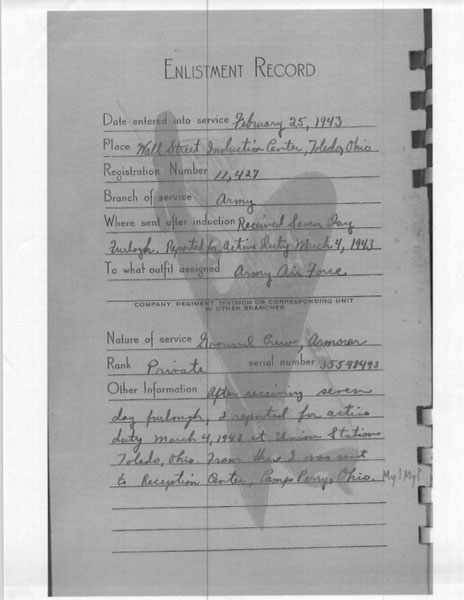 ENLISTMENT RECORD
Date entered into service February 25, 1943
Place Wall Street Induction Center, Toledo, Ohio
Registration Number 11,427
Branch of service Army
Where sent after induction Received Seven Day
Furlogh. Reported for Active Duty March 4, 1943
To what outfit assigned Army Air Force
COMPANY, REGIMENT, DIVISION OR CORRESPONDING UNIT
IN OTHER BRANCHES
Nature of service Ground Crew, Armorer
Rank Private serial number 35548493
Other Information After receiving seven
day furlough, I reported for active
duty March 4, 1943 at Union Station
Toledo, Ohio. From there I was sent
to Reception Center, Camp Perry, Ohio. My! My!